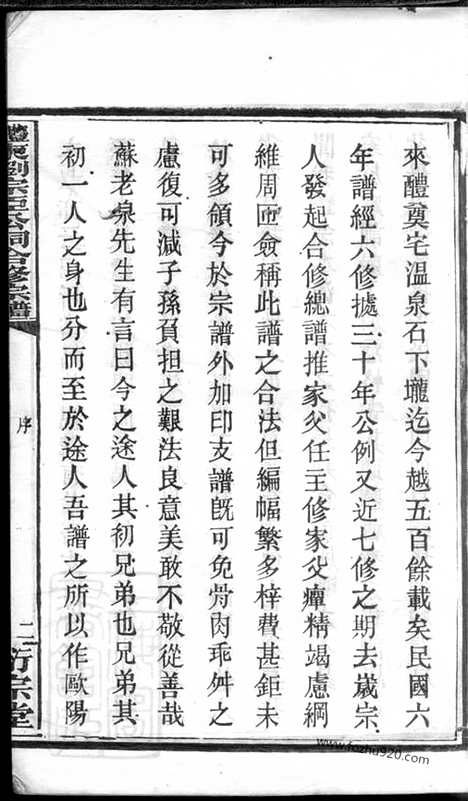 來醴奠宅溫泉石下壠迄今越五百餘載矣民國六
年譜經六修據三十年公例又近七修之期去歲宗
人發起合修總譜推家父任主修家父癉精竭慮綱
維周匝僉稱此譜之合法但編幅繁多梓費甚鉅未
可多領今於宗譜外加印支譜旣可免骨肉乖舛之
慮復可減子孫負担之艱法良意美敢不敬從善哉
蘇老泉先生有言曰今之途人其初兄弟也兄弟其
初一人之身也分而至於途人吾譜之所以作歐陽
醴東劉宗臣公祠合修宗譜
序
二
衍宗堂
www.fozhu920.com